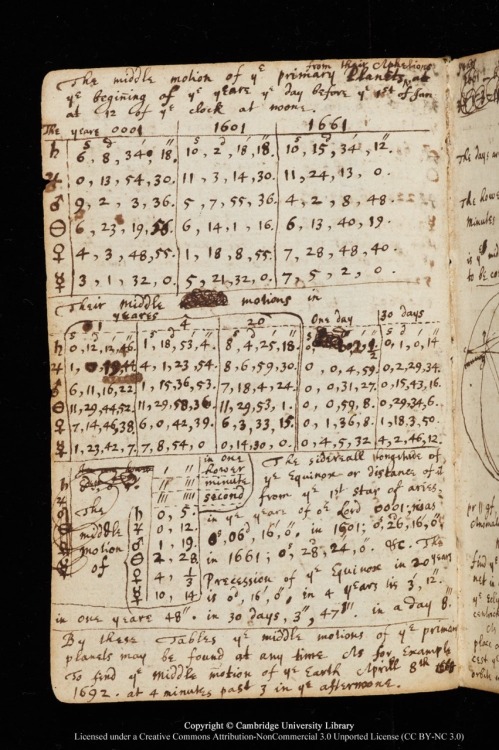 The middle motion of yͤ primary Planets from their Aphelions at
yͤ begining of yͤ yeare yͤ day before yͤ 1st of Jan
at 12 of yͤ clock at noone.
The yeare 0001 | 1601 | 1661
♄ 6, 8, 34, 18. | 10, 2, 18, 18. | 10, 15, 34, 12.
♃ 0, 13, 54, 30. | 11, 3, 14, 30. | 11, 24, 13, 0.
♂ 9, 2, 3, 36. | 5, 7, 55, 36. | 4, 2, 8, 48.
⊖ 6, 23, 19, 56. | 6, 14, 1, 16. | 6, 13, 40, 19.
♀ 4, 3, 48, 55. | 1, 18, 8, 55. | 7, 28, 48, 40.
☿ 3, 1, 32, 0. | 5, 21, 32, 0. | 7, 5, 2, 0.
Their middle motions in
yeares 1 | 4 | 20 | One day | 30 days
♄ 0, 12, 12, 46. | 1, 18, 53, 4. | 8, 4, 25, 18. | 0, 1, 0, 14
♃ 1, 0, | 4, 1, 23, 54. | 8, 6, 59, 30. | 0, 0, 4, 59. | 0, 2, 29, 34.
♂ 6, 11, 16, 22 | 1, 15, 36, 53. | 7, 18, 4, 24. | 0, 0, 31, 27. | 0, 15, 43, 16.
⊖ 11, 29, 44, 52. | 11, 29, 58, 36. | 11, 29, 53, 1. | 0, 0, 59, 8. | 0, 29, 34, 6.
♀ 7, 14, 46, 38. | 6, 0, 42, 39. | 6, 3, 33, 15. | 0, 1, 36, 8. | 1, 18, 3, 50.
☿ 1, 23, 42, 7. | 7, 8, 54, 0 | 0, 14, 30, 0. | 0, 4, 5, 32 | 4, 2, 46, 12.
in one
hower
minute
second
The
middle
motion
of
♄ 0, 5.
♃ 0, 12.
♂ 1, 19.
⊖ 2, 28
♀ 4, 3
☿ 10, 14
The sidereall longitude of
yͤ Equinox or distance of it
from yͤ 1st star of aries
in yͤ yeare of oͬ Lord 0001, was
0°, 06', 16", 0'''. in 1601; 0°, 26', 16", 0'''.
in 1661; 0°, 28', 24", 0'''. &c. The
Precession of yͤ Equinox in 20 years
is 0°, 16', 0", in 4 yeares tis 3', 12".
in one yeare 48". in 30 days, 3", 47'''. in a day 8'''.
By these Tables yͤ middle motions of yͤ primary
planets may be found at any time As for Example
To find yͤ middle motion of yͤ Earth Aprill 8th
1692. at 4 minutes past 3 in yͤ afternoone.
The days
The howe
Minutes
is yͤ
to be
find yͤ
net in
yͤ
place o
cest
Copyright © Cambridge University Library
Licensed under a Creative Commons Attribution-NonCommercial 3.0 Unported License (CC BY-NC 3.0)